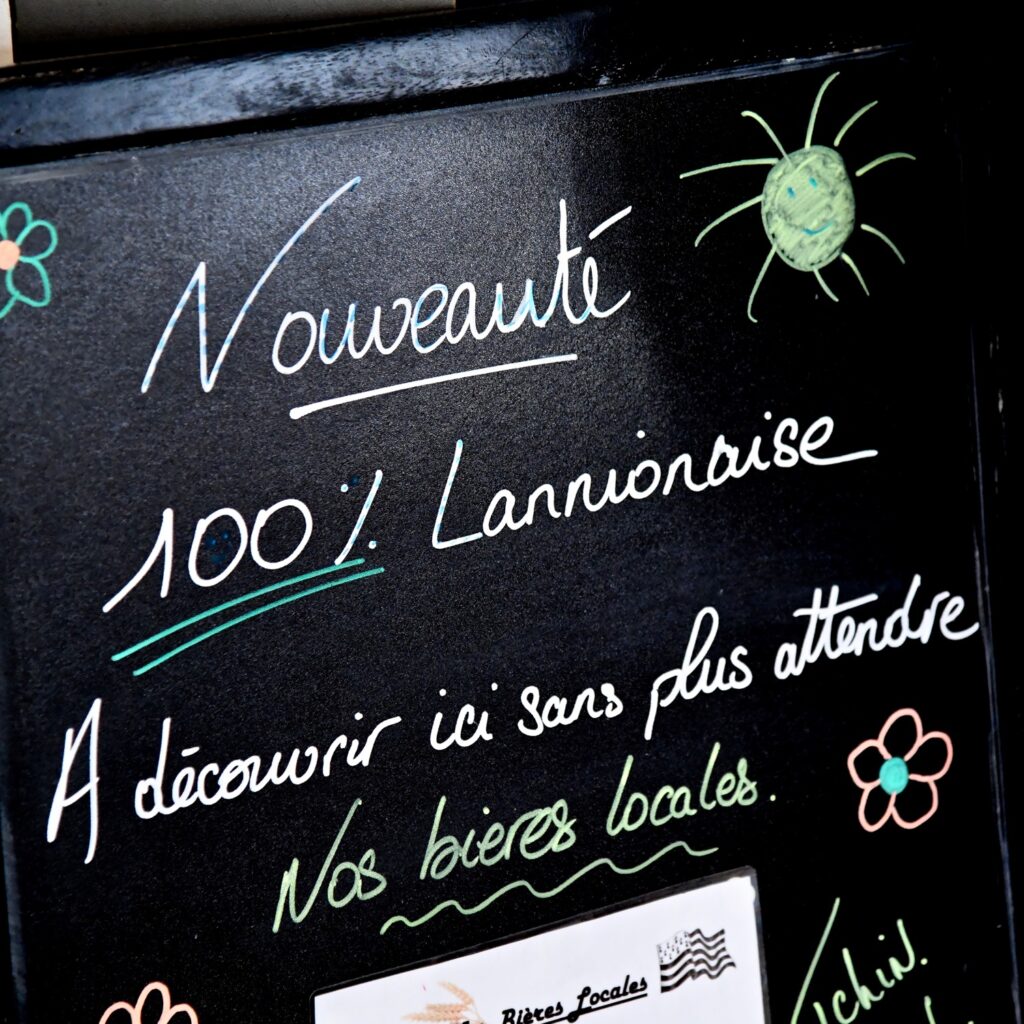 Nouveauté
100% Lannionaise
A découvrir ici sans plus attendre
Nos bieres locales.
Bières Locales
Tchin.